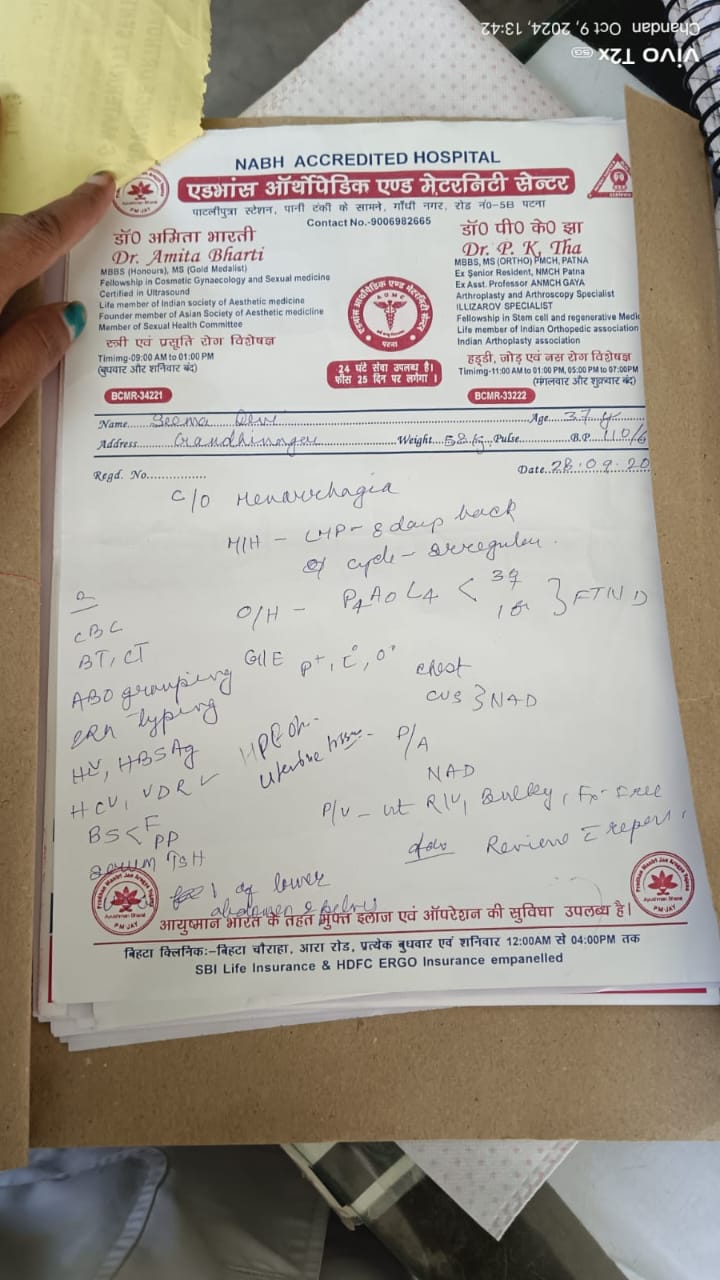 vivo T2x 5G
Chandan Oct 9, 2024, 13:42
NABH ACCREDITED HOSPITAL
एडभांस ऑर्थोपेडिक एण्ड मेटरनिटी सेन्टर
पाटलीपुत्रा स्टेशन, पानी टंकी के सामने, गाँधी नगर, रोड नं०-5B पटना
Contact No.-9006982665
डॉ० अमिता भारती
Dr. Amita Bharti
MBBS (Honours), MS (Gold Medalist)
Fellowship in Cosmetic Gynaecology and Sexual medicine
Certified in Ultrasound
Life member of Indian society of Aesthetic medicine
Founder member of Asian Society of Aesthetic medicline
Member of Sexual Health Committee
स्त्री एवं प्रसुति रोग विशेषज्ञ
Timimg-09:00 AM to 01:00 PM
(बुधवार और शनिवार बंद)
BCMR-34221
एडभांस ऑर्थोपेडिक एण्ड मेटरनिटी सेन्टर
AOMC
पटना
24 घंटे सेवा उपलब्ध है।
फीस 25 दिन पर लगेगा ।
डॉ० पी० के० झा
Dr. P. K. Tha
MBBS, MS (ORTHO) PMCH, PATNA
Ex Senior Resident, NMCH Patna
Ex Asst. Professor ANMCH GAYA
Arthroplasty and Arthroscopy Specialist
ILLIZAROV SPECIALIST
Fellowship in Stem cell and regenerative Medk
Life member of Indian Orthopedic association
Indian Arthoplasty association
हड्डी, जोड़ एवं नस रोग विशेषज्ञ
Timimg-11:00 AM to 01:00 PM, 05:00 PM to 07:00PM
(मंगलवार और शुक्रवार बंद)
BCMR-33222
Name Seema Devi Age 37 y
Address Gandhinager Weight 58 kg Pulse B.P. 110/6
Regd. No. Date 28.09.20
C/O Menorrhagia
M/H - LMP- 8 days back
cycle - Irregular.
O/H - P4A0L4 < 3♀ 1♂ } FTND
CBC
BT, CT
ABO grouping
Rh typing
HIV, HBSAg
HCV, VDRL
BS < F PP
Serum TSH
of lower
abdomen & pelvis
G/E P+, I°, O°
HPE of
Uterine tissue
Chest
CVS } NAD
P/A
NAD
P/V - ut R/V, Bulky, Fx- Free
Adv Review c reports
Pradhan Mantri Jan Arogya Yojna
Ayushman Bharat
PM-JAY
आयुष्मान भारत के तहत मुफ्त इलाज एवं ऑपरेशन की सुविधा उपलब्ध है।
बिहटा क्लिनिकः-बिहटा चौराहा, आरा रोड, प्रत्येक बुधवार एवं शनिवार 12:00AM से 04:00PM तक
SBI Life Insurance & HDFC ERGO Insurance empanelled